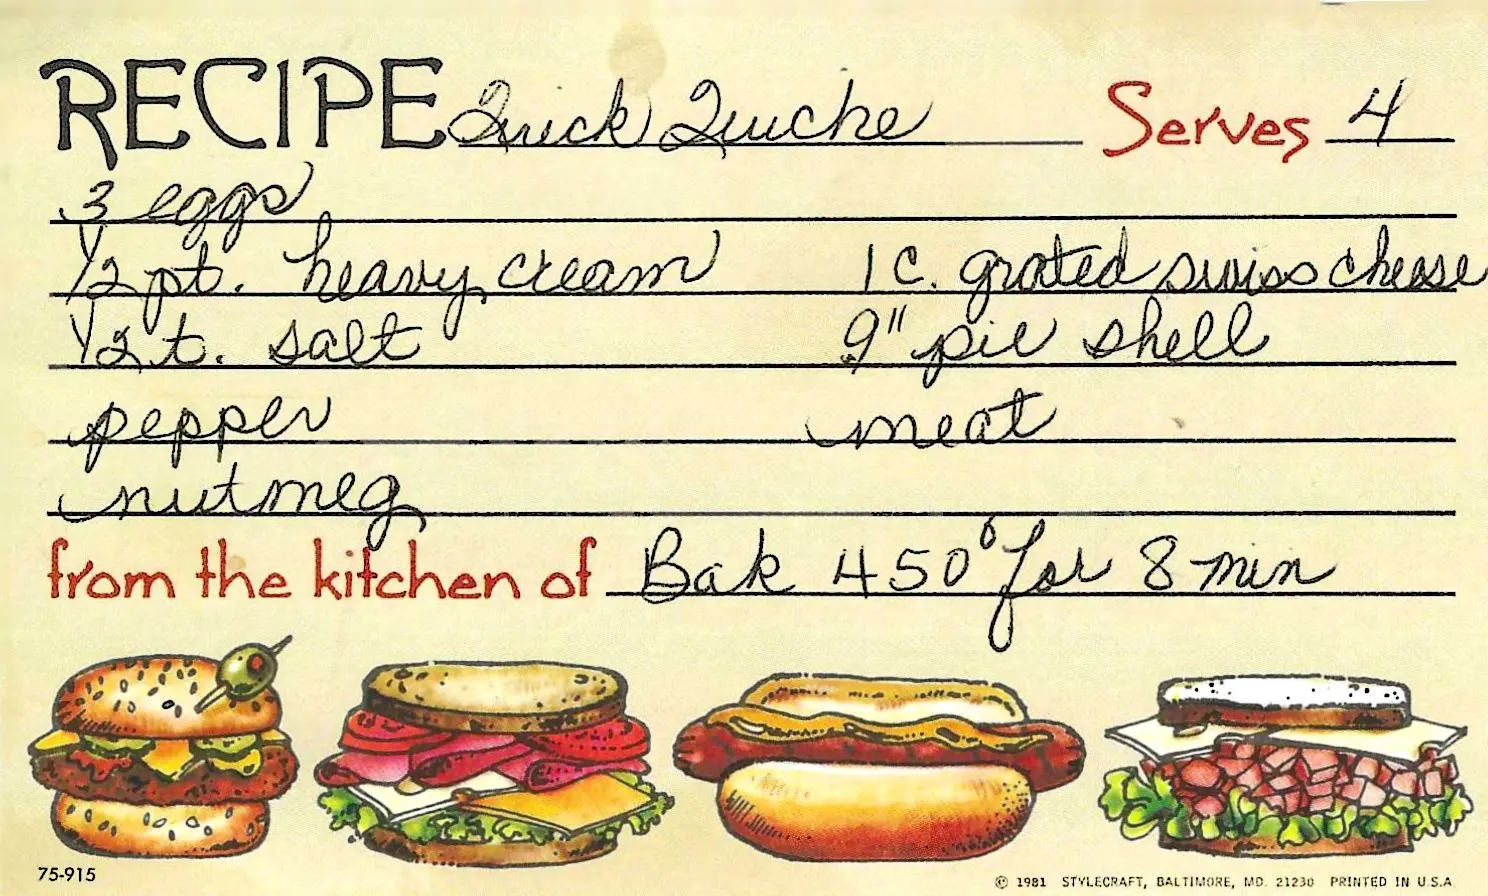 RECIPE Quick Quiche Serves 4
3 eggs
1/2 pt. heavy cream 1 c. grated swiss cheese
1/2 t. salt 9" pie shell
pepper meat
nutmeg
from the kitchen of Bak 450° for 8 min
75-915
© 1981 STYLECRAFT, BALTIMORE, MD. 21230 PRINTED IN U.S.A.